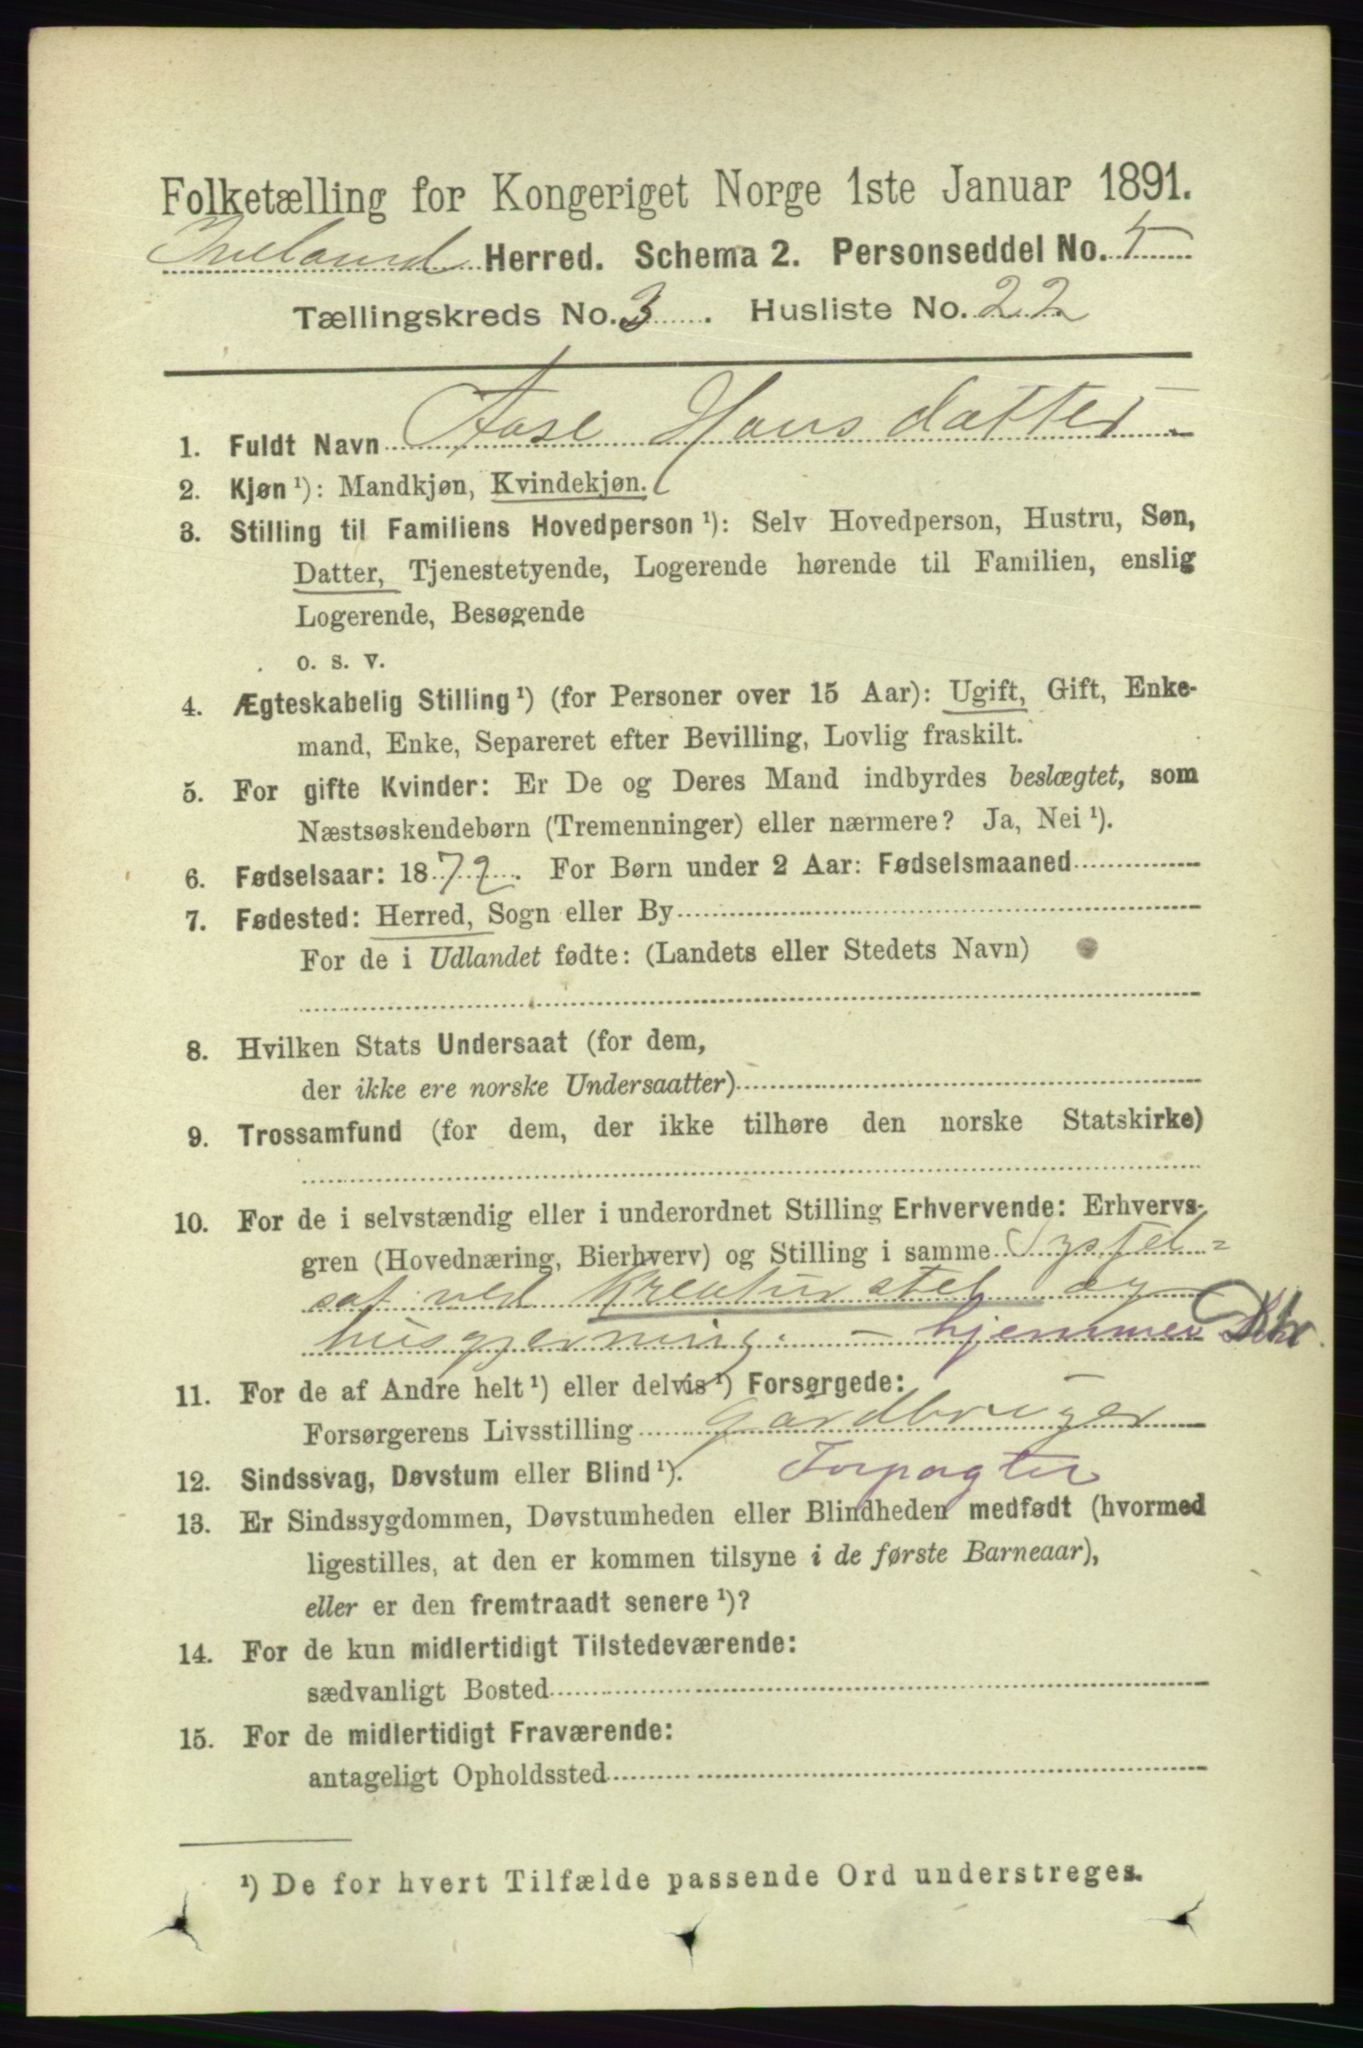 Folketælling for Kongeriget Norge 1ste Januar 1891.
Iveland Herred. Schema 2. Personseddel No. 5
Tællingskreds No. 3. Husliste No. 22
1. Fuldt Navn Aase Hansdatter.
2. Kjøn ¹): Mandkjøn, Kvindekjøn.
3. Stilling til Familiens Hovedperson ¹): Selv Hovedperson, Hustru, Søn,
Datter, Tjenestetyende, Logerende hørende til Familien, enslig
Logerende, Besøgende
o. s. v.
4. Ægteskabelig Stilling ¹) (for Personer over 15 Aar): Ugift, Gift, Enke-
mand, Enke, Separeret efter Bevilling, Lovlig fraskilt.
5. For gifte Kvinder: Er De og Deres Mand indbyrdes beslægtet, som
Næstsøskendebørn (Tremenninger) eller nærmere? Ja, Nei ¹).
6. Fødselsaar: 1872. For Børn under 2 Aar: Fødselsmaaned
7. Fødested: Herred, Sogn eller By
For de i Udlandet fødte: (Landets eller Stedets Navn)
8. Hvilken Stats Undersaat (for dem,
der ikke ere norske Undersaatter)
9. Trossamfund (for dem, der ikke tilhøre den norske Statskirke)
10. For de i selvstændig eller i underordnet Stilling Erhvervende: Erhvervs-
gren (Hovednæring, Bierhverv) og Stilling i samme Syssel=
sat ved Kreaturstel og
husgjerning. - hjemmev
11. For de af Andre helt ¹) eller delvis ¹) Forsørgede:
Forsørgerens Livsstilling Gaardbruger
Forpagter
12. Sindssvag, Døvstum eller Blind ¹).
13. Er Sindssygdommen, Døvstumheden eller Blindheden medfødt (hvormed
ligestilles, at den er kommen tilsyne i de første Barneaar),
eller er den fremtraadt senere ¹)?
14. For de kun midlertidigt Tilstedeværende:
sædvanligt Bosted
15. For de midlertidigt Fraværende:
antageligt Opholdssted
¹) De for hvert Tilfælde passende Ord understreges.